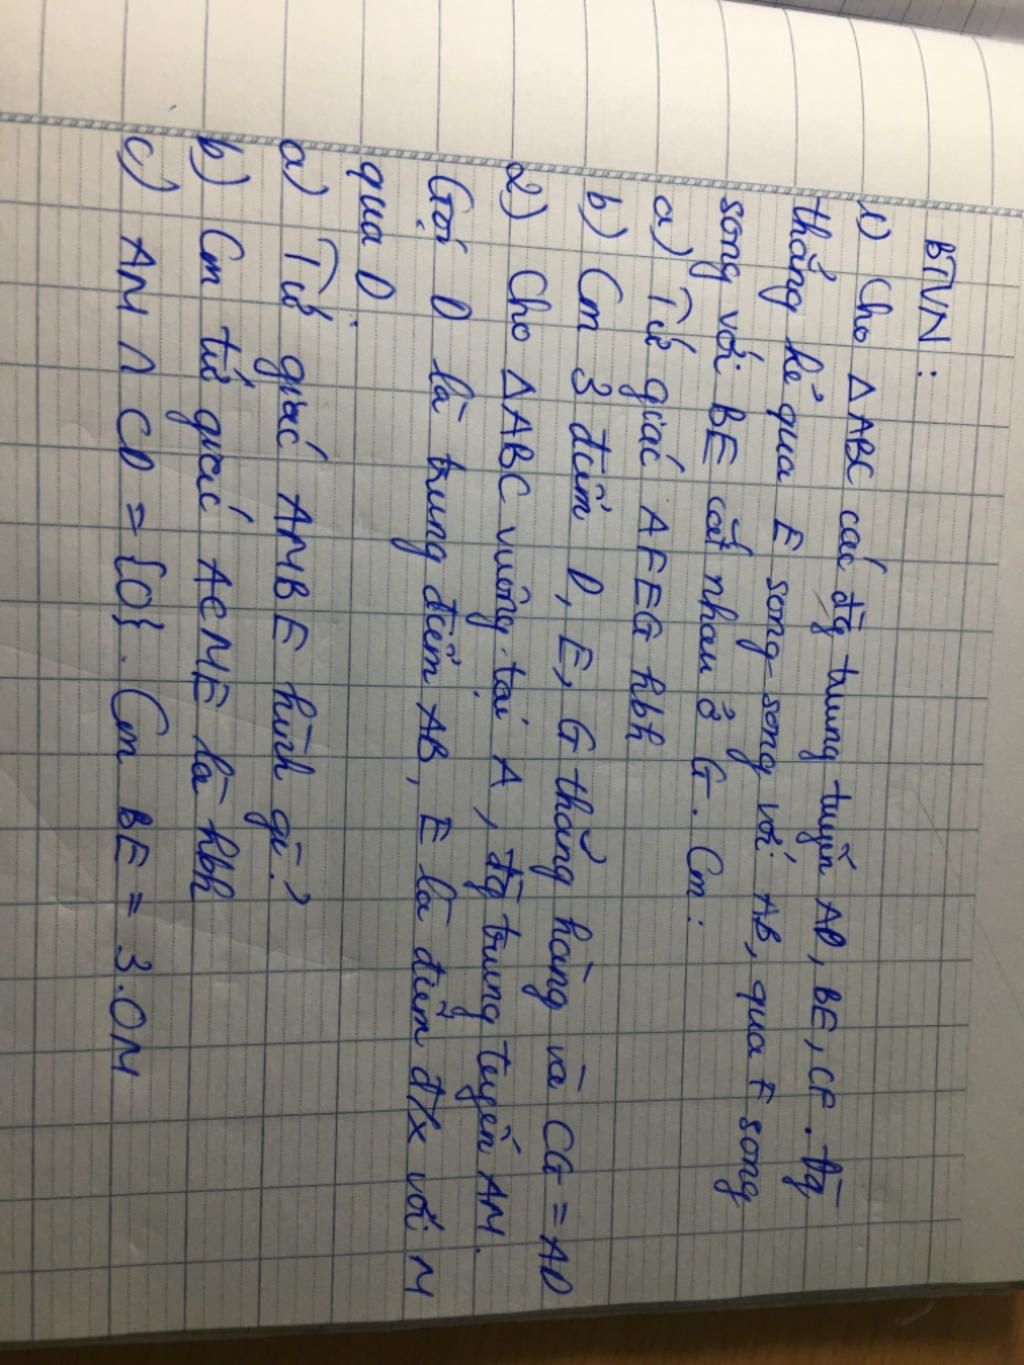 BTVN:
1) Cho △ABC các đg trung tuyến AD, BE, CF. Đg
thẳng kẻ qua E song song với AB, qua F song
song với BE cắt nhau ở G. Cm:
a) Tứ giác AFEG hbh
b) Cm 3 điểm D, E, G thẳng hàng và CG = AD
2) Cho △ABC vuông tại A, đg trung tuyến AM.
Gọi D là trung điểm AB, E là điểm đ/x với M
qua D
a) Tứ giác AMBE hình gì?
b) Cm tứ giác ACME là hbh
c) AM ∩ CD = {O}. Cm BE = 3.OM